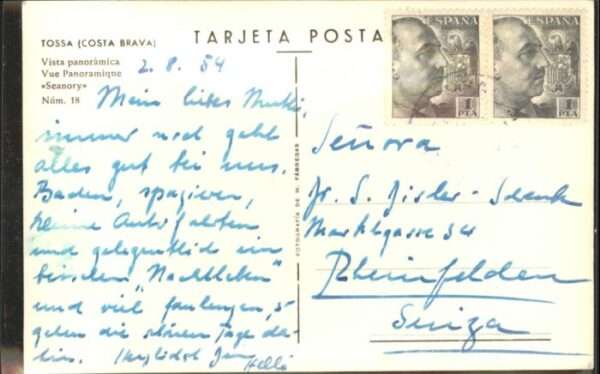 TOSSA (COSTA BRAVA)
Vista panorámica
Vue Panoramique
«Seanory»
Núm. 18
TARJETA POSTA
ESPAÑA
ESPAÑA
1 PTA
1 PTA
FOTOGRAFÍA DE N. FÁBREGAS
2. 8. 54
Mein liebes Mutti,
immer noch geht
alles gut bei uns.
Baden, spazieren,
kleine Autofahrten
und gelegentlich ein
bisschen "Nachtleben"
und viel faulenzen, so
gehen die schönen Tage da-
hin. Herzlichst
Señora
Fr. S.
Marktgasse 34
Rheinfelden
Suiza